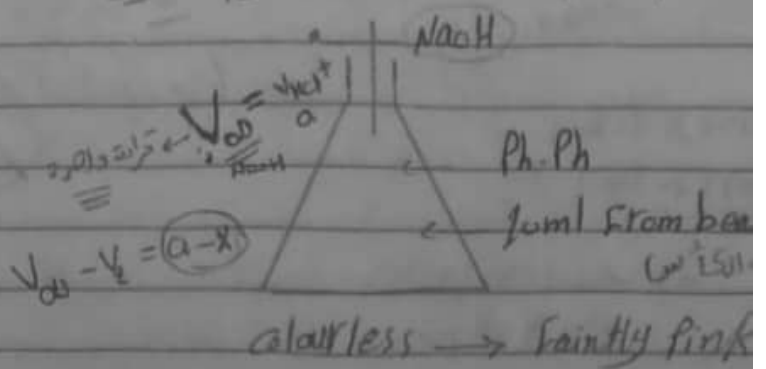 NaOH
V∞ = VHCl +
a
NaOH
Ph.Ph
10ml From bea
V∞ - Vt = a-x
colourless → Faintly Pink